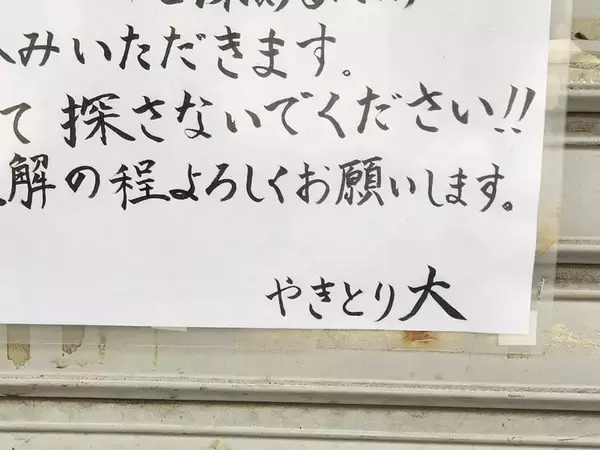 みいただきます。
て探さないでください!!
解の程よろしくお願いします。
やきとり大